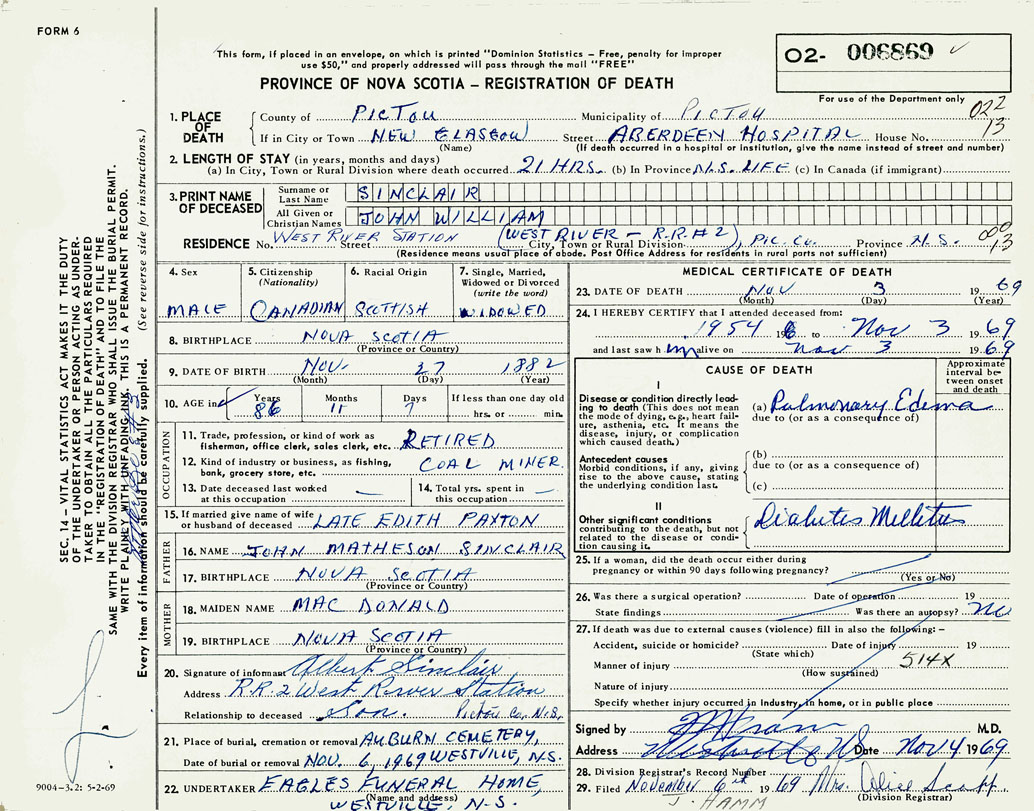 FORM 6
This form, if placed in an envelope, on which is printed "Dominion Statistics – Free, penalty for improper
use $50," and properly addressed will pass through the mail "FREE"
PROVINCE OF NOVA SCOTIA – REGISTRATION OF DEATH
O2- 006869
For use of the Department only
022
13
1. PLACE OF DEATH
County of PICTOU Municipality of PICTOU
If in City or Town NEW GLASGOW Street ABERDEEN HOSPITAL House No.
(Name) (If death occurred in a hospital or institution, give the name instead of street and number)
2. LENGTH OF STAY (in years, months and days)
(a) In City, Town or Rural Division where death occurred 21 HRS. (b) In Province N.S. LIFE (c) In Canada (if immigrant)
3. PRINT NAME OF DECEASED
Surname or Last Name SINCLAIR
All Given or Christian Names JOHN WILLIAM
RESIDENCE No. WEST RIVER STATION Street (WEST RIVER – R.R.#2) City, Town or Rural Division PIC. CO. Province N.S. 13
(Residence means usual place of abode. Post Office Address for residents in rural parts not sufficient)
4. Sex
MALE
5. Citizenship
(Nationality)
CANADIAN
6. Racial Origin
SCOTTISH
7. Single, Married,
Widowed or Divorced
(write the word)
WIDOWED
8. BIRTHPLACE NOVA SCOTIA
(Province or Country)
9. DATE OF BIRTH NOV. 27 1882
(Month) (Day) (Year)
10. AGE in Years 86 Months 11 Days 7 If less than one day old
hrs. or min.
OCCUPATION
11. Trade, profession, or kind of work as
fisherman, office clerk, sales clerk, etc. RETIRED
12. Kind of industry or business, as fishing,
bank, grocery store, etc. COAL MINER.
13. Date deceased last worked
at this occupation —
14. Total yrs. spent in
this occupation —
15. If married give name of wife
or husband of deceased LATE EDITH PAXTON
FATHER
16. NAME JOHN MATHESON SINCLAIR
17. BIRTHPLACE NOVA SCOTIA
(Province or Country)
MOTHER
18. MAIDEN NAME MAC DONALD
19. BIRTHPLACE NOVA SCOTIA
(Province or Country)
20. Signature of informant Albert Sinclair
Address R.R.2 West River Station
Relationship to deceased Son. Pictou Co. N.S.
21. Place of burial, cremation or removal AUBURN CEMETERY,
Date of burial or removal NOV. 6, 1969 WESTVILLE, N.S.
22. UNDERTAKER EAGLES FUNERAL HOME,
(Name and address)
WESTVILLE, N.S.
MEDICAL CERTIFICATE OF DEATH
23. DATE OF DEATH NOV 3 1969
(Month) (Day) (Year)
24. I HEREBY CERTIFY that I attended deceased from:
1954 19 to Nov 3 1969
and last saw him alive on Nov 3 1969
CAUSE OF DEATH
Approximate
interval be-
tween onset
and death
I
Disease or condition directly lead-
ing to death (This does not mean
the mode of dying, e.g., heart fail-
ure, asthenia, etc. It means the
disease, injury, or complication
which caused death.)
(a) Pulmonary Edema
due to (or as a consequence of)
Antecedent causes
Morbid conditions, if any, giving
rise to the above cause, stating
the underlying condition last.
(b)
due to (or as a consequence of)
(c)
II
Other significant conditions
contributing to the death, but not
related to the disease or condi-
tion causing it.
Diabetes Mellitus
25. If a woman, did the death occur either during
pregnancy or within 90 days following pregnancy?
(Yes or No)
26. Was there a surgical operation? Date of operation 19
State findings Was there an autopsy? No
27. If death was due to external causes (violence) fill in also the following:–
Accident, suicide or homicide? Date of injury 19
(State which)
514X
Manner of injury
(How sustained)
Nature of injury
Specify whether injury occurred in Industry, in home, or in public place
Signed by M.D.
Address Date Nov 4 1969
28. Division Registrar's Record Number
29. Filed November 6th 1969 Mrs. Alice
J. HAMM (Division Registrar)
SEC. 14 – VITAL STATISTICS ACT MAKES IT THE DUTY
OF THE UNDERTAKER OR PERSON ACTING AS UNDER-
TAKER TO OBTAIN ALL THE PARTICULARS REQUIRED
IN THE "REGISTRATION OF DEATH" AND TO FILE THE
SAME WITH THE DIVISION REGISTRAR WHO SHALL ISSUE THE BURIAL PERMIT.
WRITE PLAINLY WITH UNFADING INK. THIS IS A PERMANENT RECORD.
Every item of information should be carefully supplied. (See reverse side for instructions.)
9004–3.2: 5-2-69